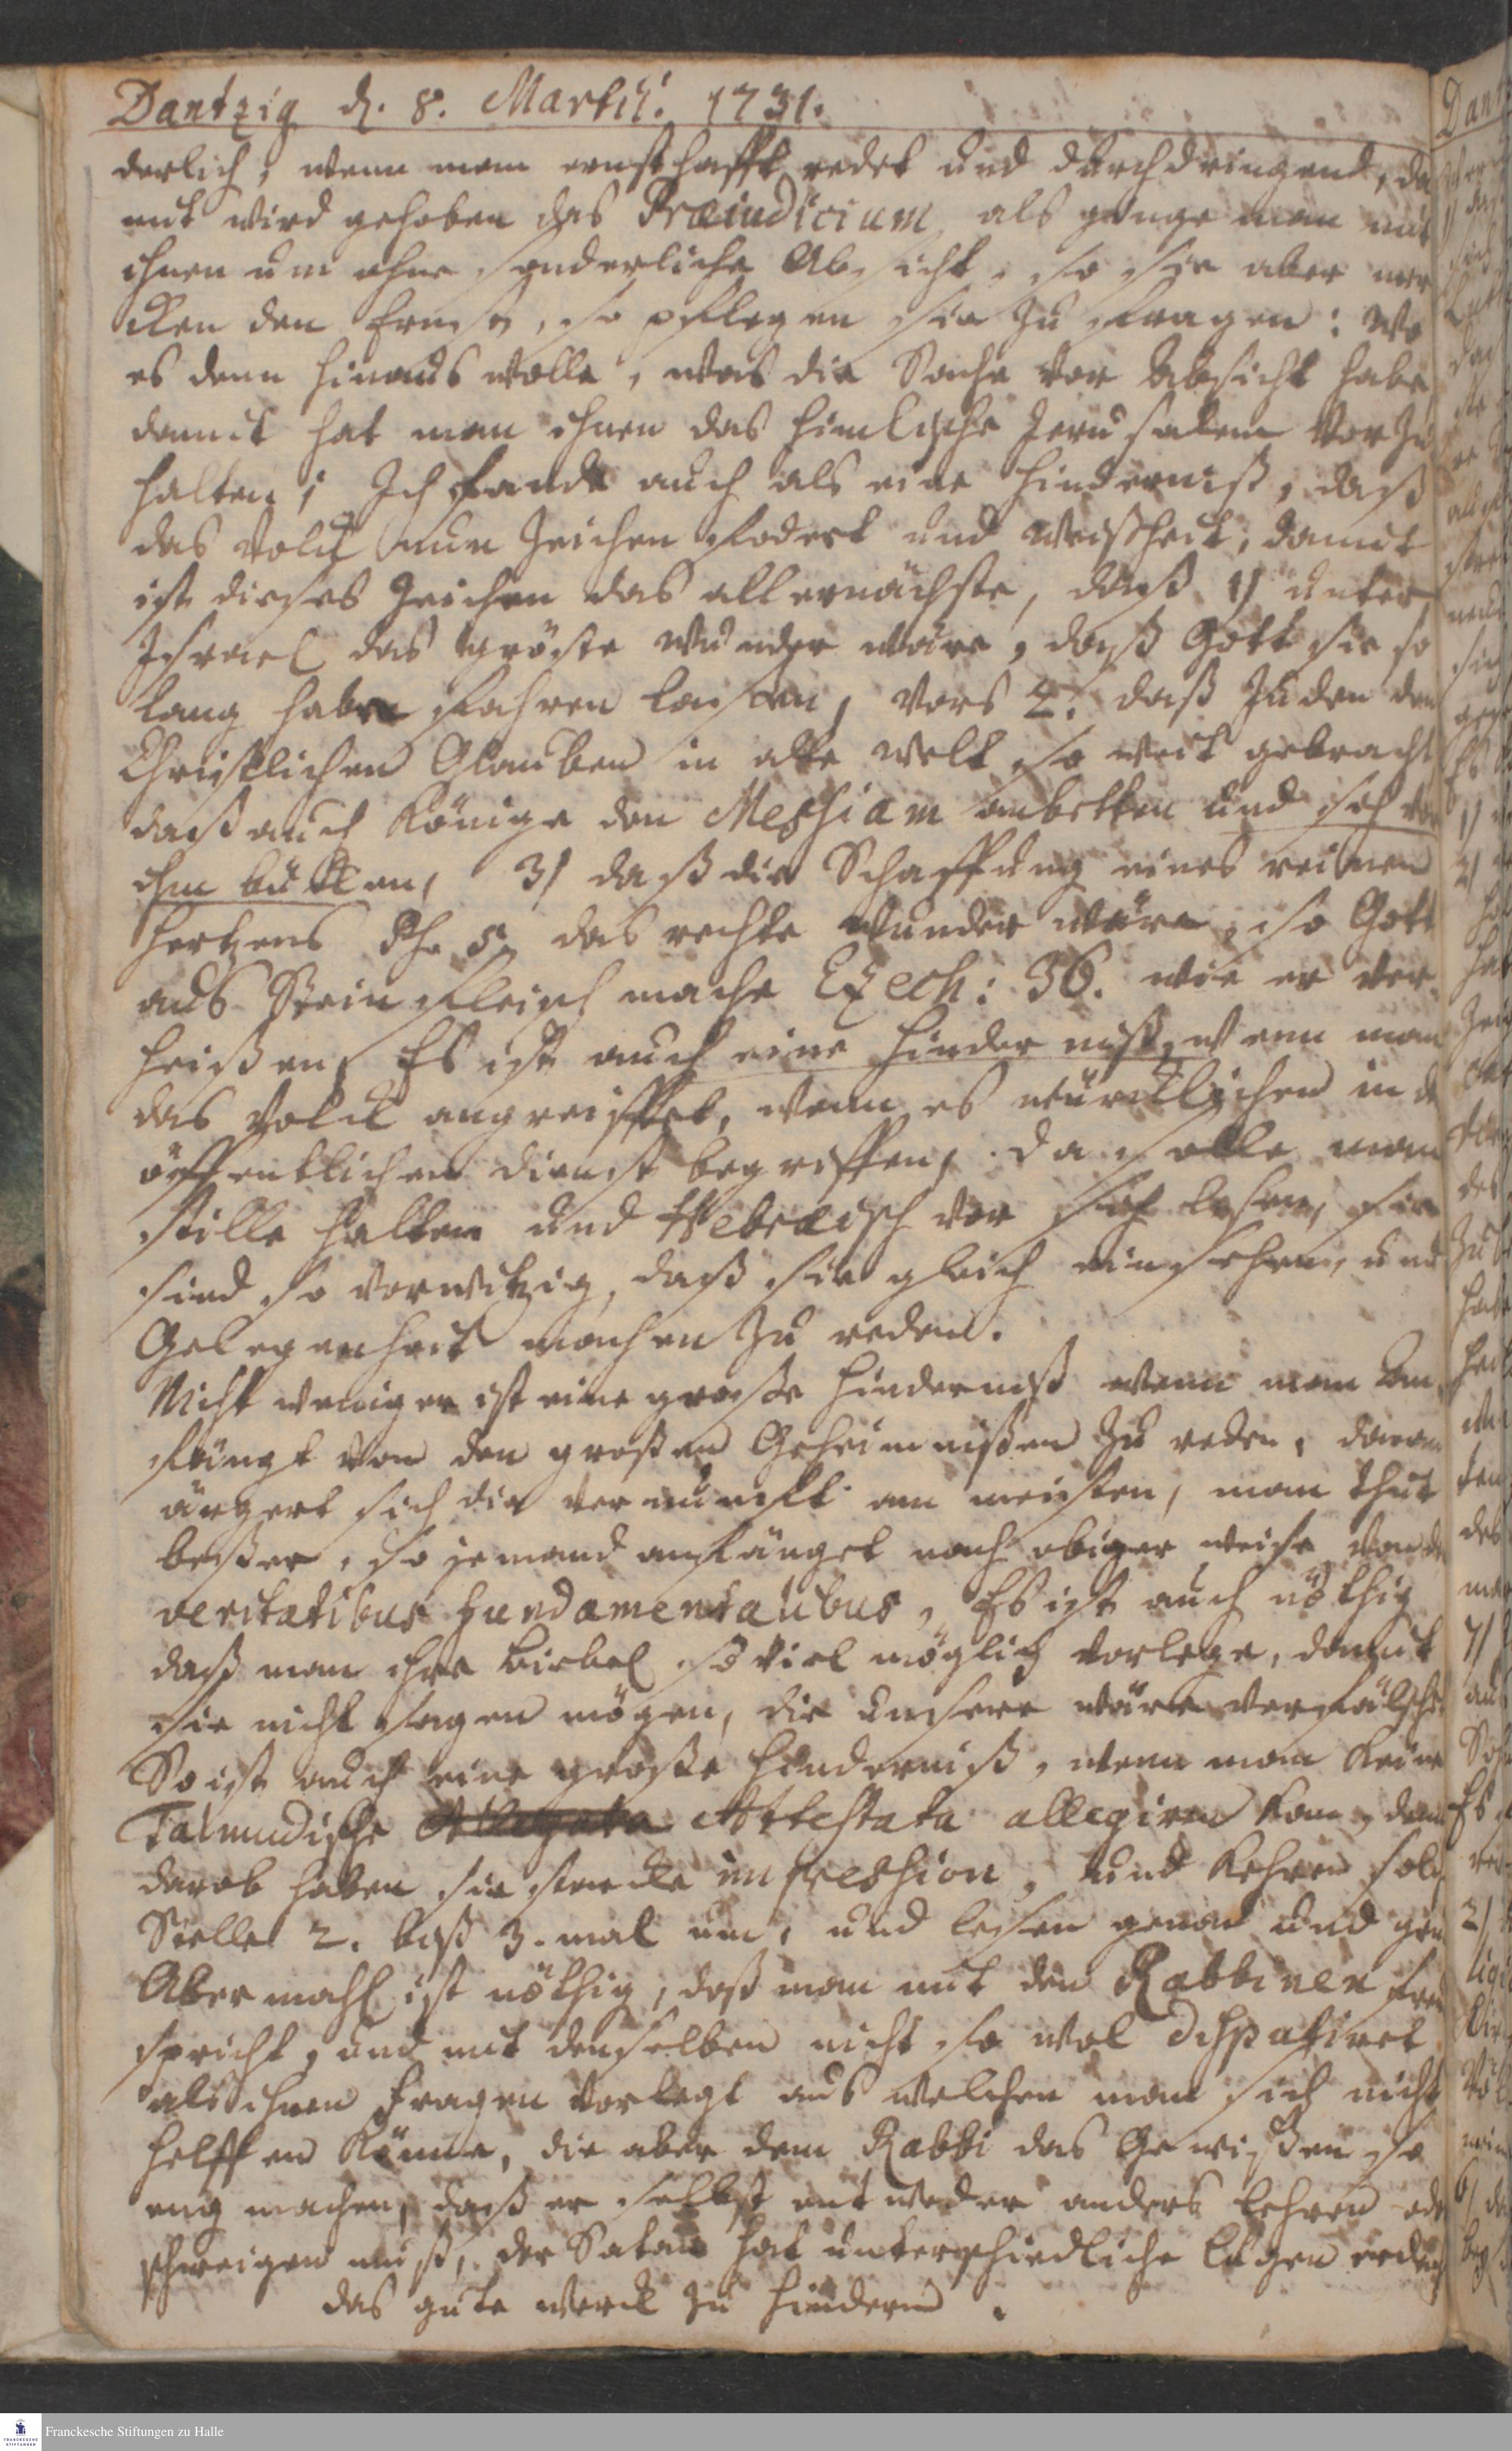 Dantzig d. 8. Martii. 1731.
derlich, wenn man ernsthafft redet und durchdringend, da
mit wird gehoben das Præiudicium, als ginge man mit
ihnen um ohne sonderliche Absicht, so sie aber mer
cken den Ernst, so pflegen sie zu fragen: Wo
es denn hinaus wolle, was die Sache vor Absicht habe
damit hat man ihnen das himlische Jerusalem vorzu
halten; Ich fande auch als eine Hinderniß, daß
das Volck nun Zeichen fodert und Weißheit, damit
ist dieses Zeichen das allernächste, daß 1/ unter
Israel das gröste Wunder wäre, daß Gott sie so
lang habe fahren lassen, vors 2. daß Juden den
Christlichen Glauben in alle Welt so weit gebracht
daß auch Könige den Messiam anbetten und sich vor
ihm bücken, 3/ daß die Schaffung eines reinen
Hertzens Ps. 51 das rechte Wunder wäre, so Gott
aus Stein Fleisch mache Ezech: 36. wie er ver
heißen, Es ist auch eine Hinderniß, wenn man
das Volck angreiffet, wenn es würcklichen in d
öffentlichen Dienst begriffen, da solle man
stille halten und Hebræisch vor sich lesen, sie
sind so vorwitzig, daß sie gleich einsehen, und
Gelegenheit machen zu reden.
Nicht weniger ist eine große Hinderniß wenn man an
fängt von den großen Geheimnißen zu reden, daran
ärgert sich die Vernunfft am meisten, man thut
beßer, so jemand anfänget nach obiger weise von d
veritatibus fundamentalibus, Es ist auch nöthig
daß man ihre Biebel so viel möglich vorlege, damit
sie nicht sagen mögen, die unsere wäre verfälscht
So ist auch eine große Hinderniß, wenn man keine
Talmudische Allegata Attestata allegiren kan, denn
darob haben sie starcke impression, und kehren solch
Stelle 2. biß 3. mal um, und lesen genau und gen
Abermahl ist nöthig, daß man mit den Rabbinen frey
spricht, und mit denselben nicht so wol disputiret
als ihnen Fragen vorlegt aus welchen man sich nicht
helffen könne, die aber dem Rabbi das Gewißen so
eng machen, daß er selbst entweder anders lehren ode
schweigen muß, der Satan hat unterschiedliche Lügen erdach
das gute Werck zu hindern.
Franckesche Stiftungen zu Halle